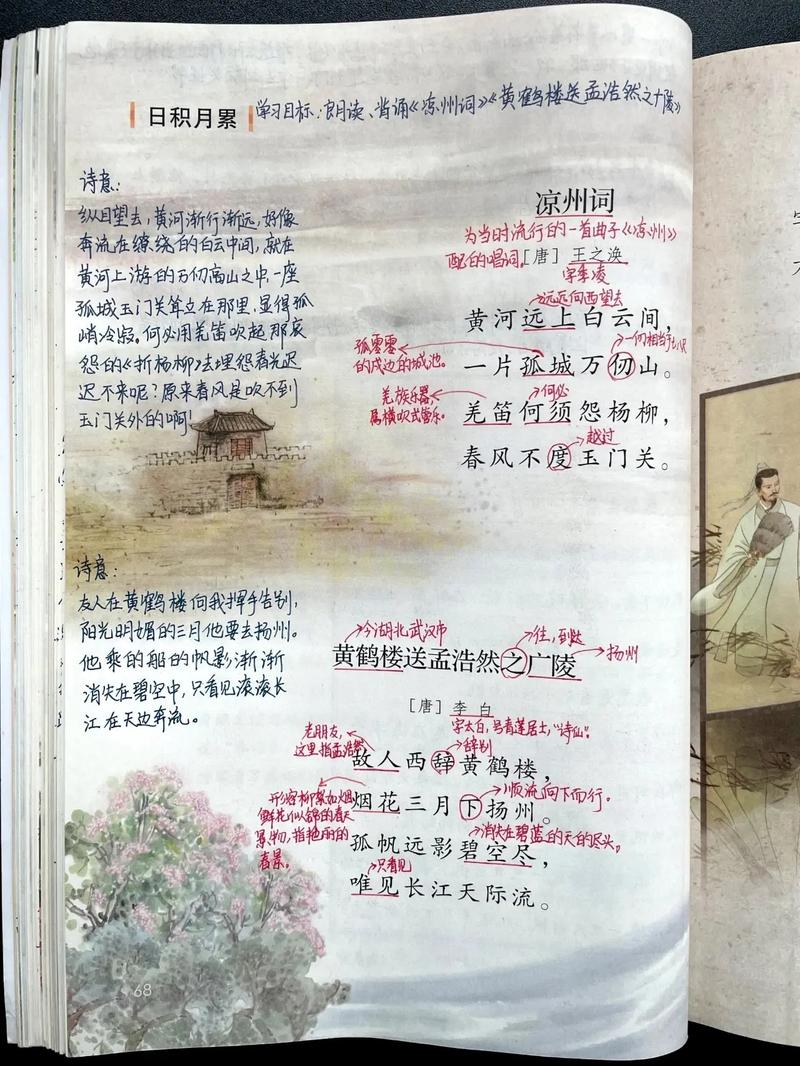 日积月累
学习目标:朗读、背诵《凉州词》《黄鹤楼送孟浩然之广陵》
诗意:
纵目望去,黄河渐行渐远,好像
奔流在缭绕的白云中间,就在
黄河上游的万仞高山之中,一座
孤城玉门关耸立在那里,显得孤
峭冷寂。何必用羌笛吹起那哀
怨的《折杨柳》去埋怨春光迟
迟不来呢?原来春风是吹不到
玉门关外的啊!
凉州词
为当时流行的一首曲子《凉州》
配的唱词。
[唐]王之涣
字季凌
远远向西望去
黄河远上白云间,
孤零零
的戍边的城池。
一仞相当于七八尺
一片孤城万仞山。
羌族乐器,
属横吹式管乐。
何必
羌笛何须怨杨柳,
越过
春风不度玉门关。
诗意:
友人在黄鹤楼向我挥手告别,
阳光明媚的三月他要去扬州。
他乘的船的帆影渐渐
消失在碧空中,只看见滚滚长
江在天边奔流。
今湖北武汉市
往,到达
黄鹤楼送孟浩然之广陵
扬州
[唐]李白
字太白,号青莲居士,“诗仙”。
老朋友,
这里指孟浩然
辞别
故人西辞黄鹤楼,
形容柳絮如烟
鲜花似锦的春天
景物,指艳丽的
春景。
顺流向下而行。
烟花三月下扬州。
消失在碧蓝的天的尽头。
孤帆远影碧空尽,
只看见
唯见长江天际流。
68